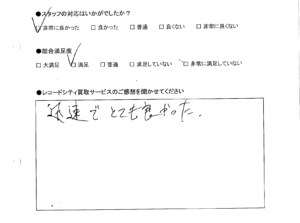 ●スタッフの対応はいかがでしたか?
☑非常に良かった □良かった □普通 □良くない □非常に良くない
●総合満足度
□大満足 ☑満足 □普通 □満足していない □非常に満足していない
●レコードシティ買取サービスのご感想を聞かせてください
迅速でとても良かった.